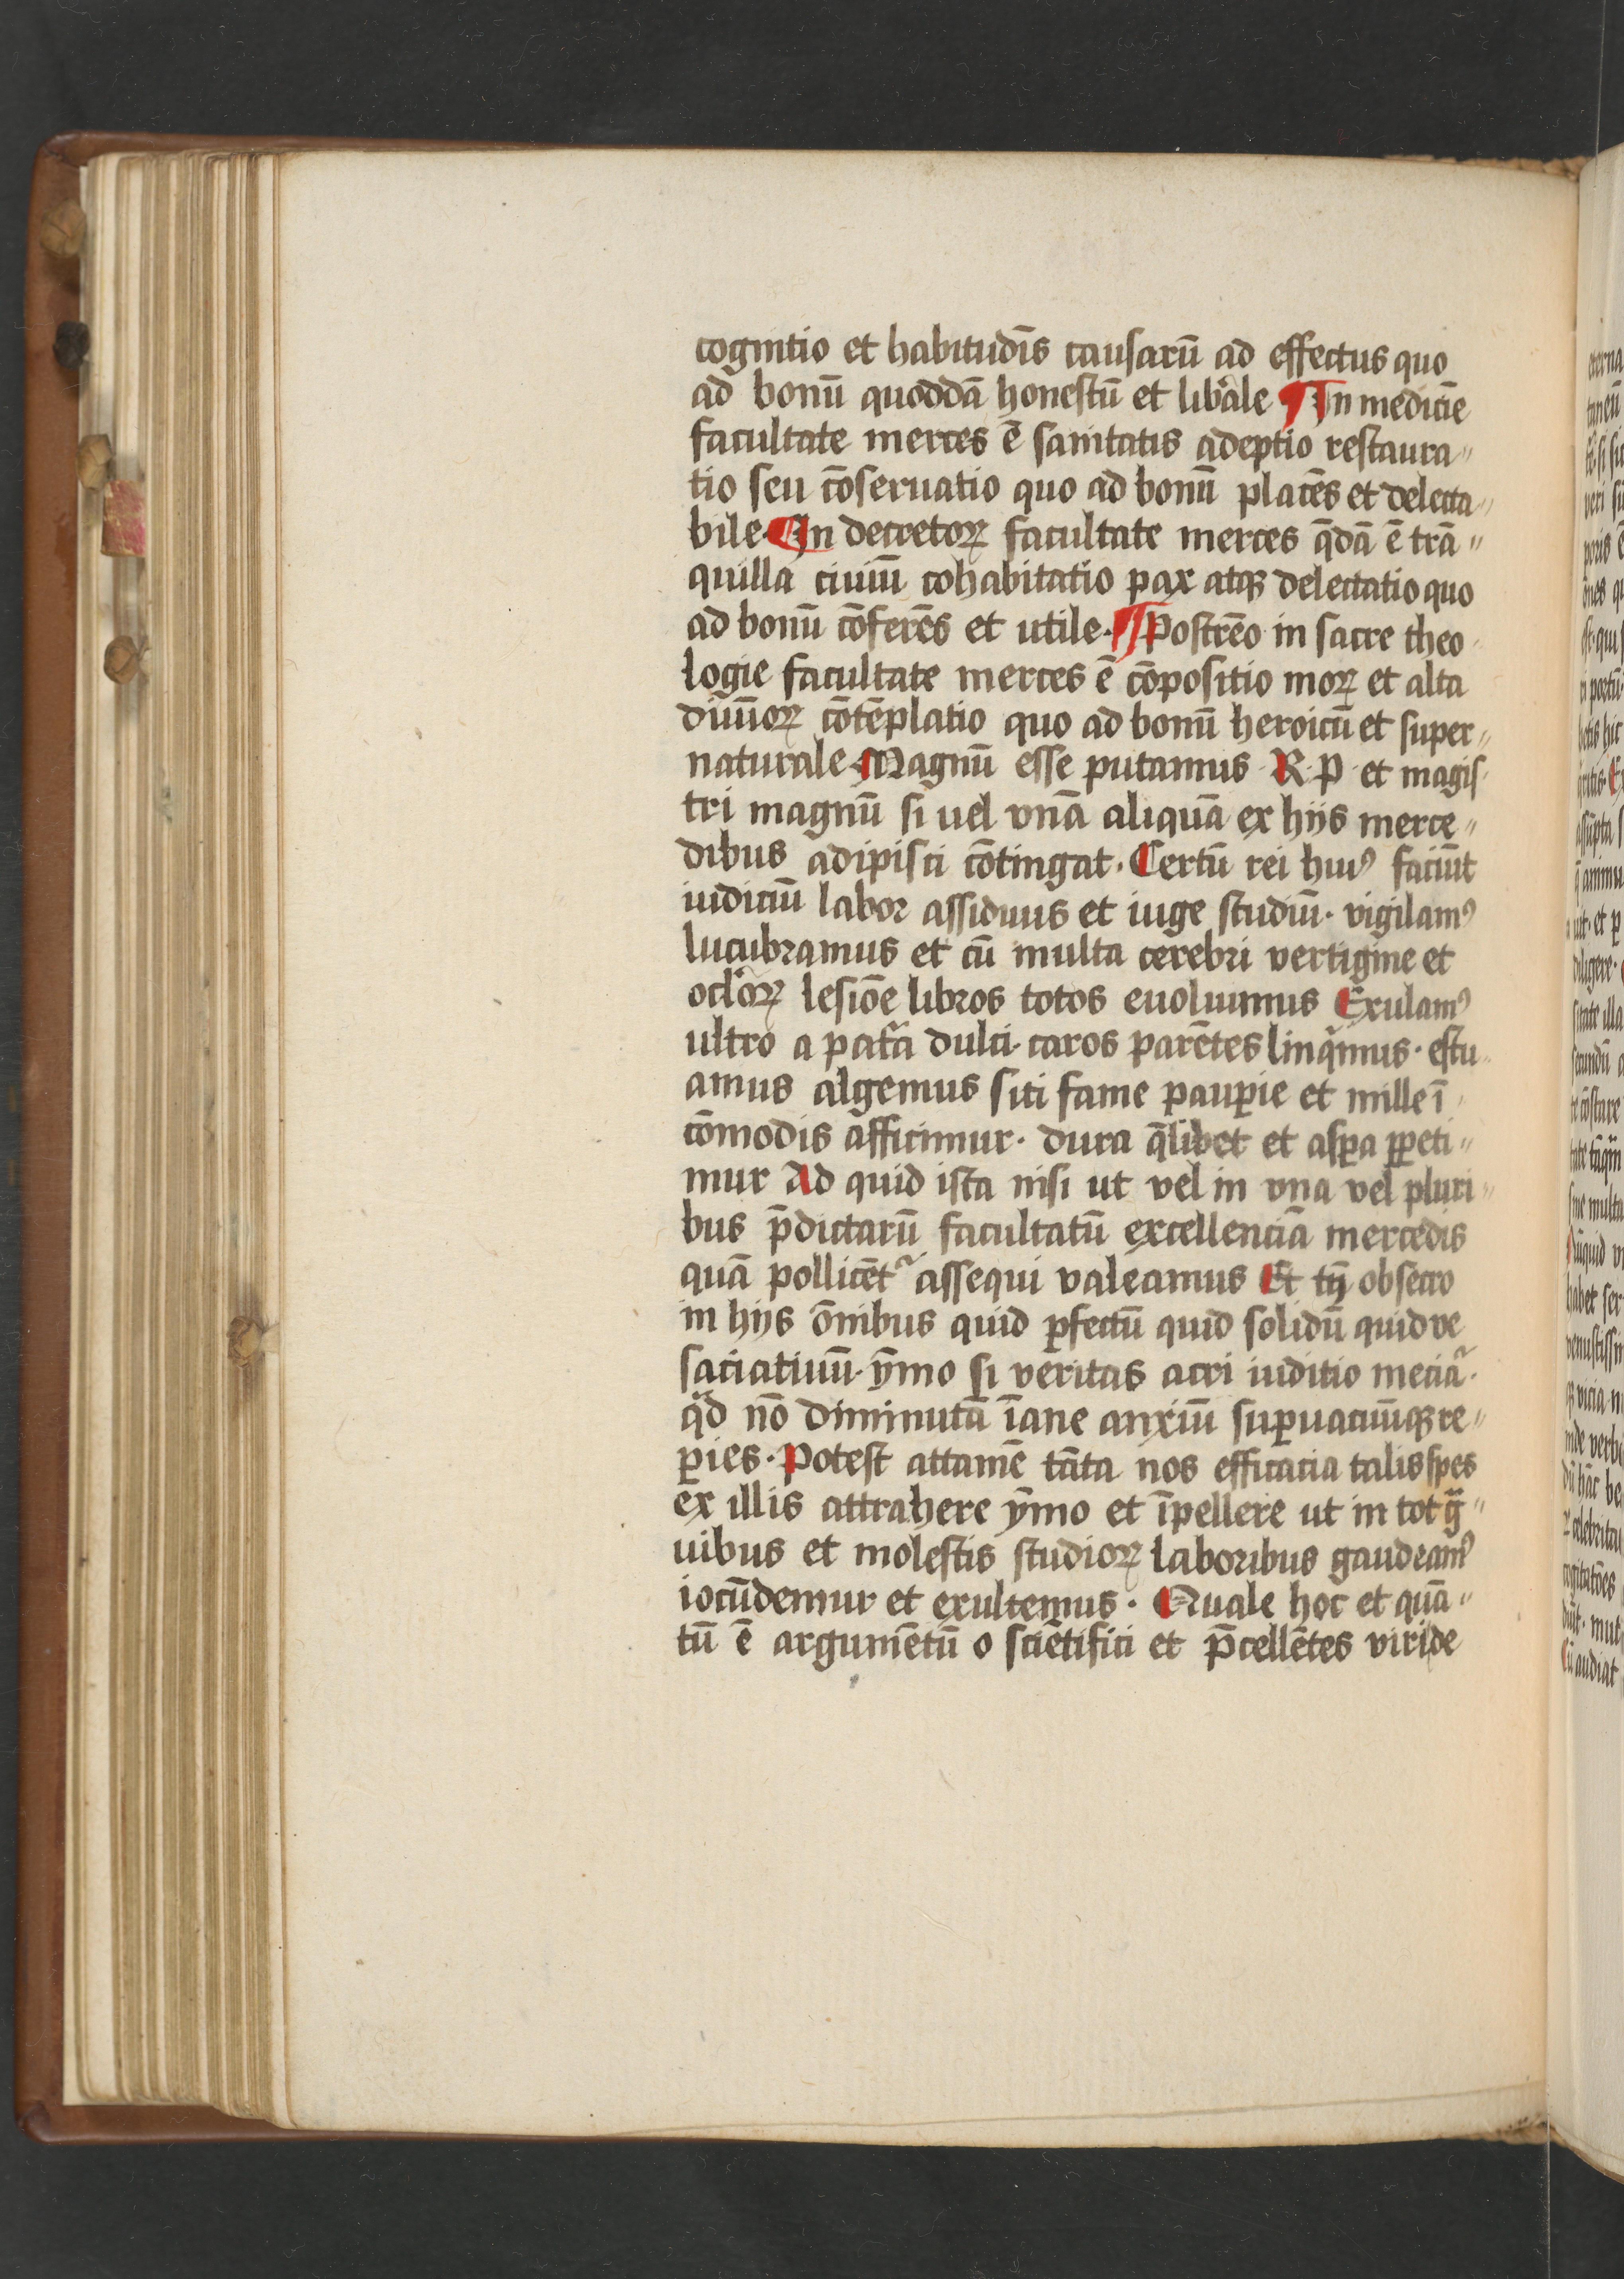 cognitio et habitudīs causarū ad effectus quo
ad bonū quoddā honestū et lib̾ale ¶ In medicīe
facultate merces ē sanitatis adeptio restaura〃
tio seu cōseruatio quo ad bonū placēs et delecta〃
bile · ¶ In decretoꝝ facultate merces q̄dā ē trā〃
quilla ciuiū cohabitatio pax atqꝫ delectatio quo
ad bonū cōferēs et utile · ¶ Postrēo in sacre theo
logie facultate merces ē cōpositio moꝝ et alta
diuinoꝝ cōtēplatio quo ad bonū heroicū et super〃
naturale · Magnū esse putamus · R · P · et magis
tri magnū si uel vnā aliquā ex hijs merce〃
dibus adipisci cōtingat · Certū rei huiꝰ faciūt
iudiciū labor assiduus et iuge studiū · vigilamꝰ
lucubramus et cū multa cerebri vertigine et
oclōꝝ lesiōe libros totos euoluimus Exulamꝰ
ultro a pat̾a dulci · caros parētes linqͥmus · estu〃
amus algemus siti fame paup̱ie et mille ī
cōmodis afficimur · dura q̄libet et asp̱a p̱peti〃
mur Ad quid ista nisi ut vel in vna vel pluri〃
bus p̄dictarū facultatū excellenciā mercedis
quā pollicēt᷑ assequi valeamus Et tn̄ obsecro
in hijs ōnibus quid ꝑfectū quid solidū quidve
saciatiuū · ȳmo si veritas acri iuditio mecia᷑ ·
qͥd nō diminutā īane anxiū suꝑuacuūqꝫ re〃
ꝑies · Potest attamē tāta nos efficacia talis spes
ex illis attrahere ȳmo et īpellere ut in tot gͣ〃
uibus et molestis studioꝝ laboribus gaudeamꝰ
iocūdemur et exultemus · Quale hoc et quā〃
tū ē argumētū o sciētifici et p̄cellētes viri de